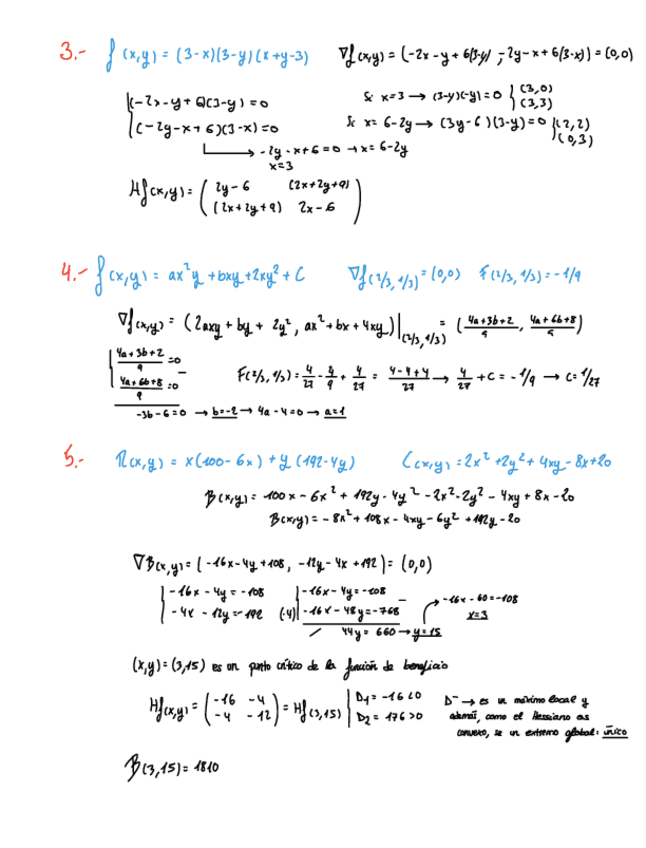 3.- f(x,y) = (3-x)(3-y)(x+y-3) ∇f(x,y) = (-2x-y+6(3-y), -2y-x+6(3-x)) = (0,0)
(-2x-y+6)(3-y) = 0
(-2y-x+6)(3-x) = 0
Si x=3 → (3-y)(-y) = 0 { (3,0) (3,3)
Si x= 6-2y → (3y-6)(3-y) = 0 { (2,2) (0,3)
→ -2y-x+6=0 → x=6-2y
x=3
Hf(x,y) = ( 2y-6 (2x+2y+9)
(2x+2y+9) 2x-6 )
4.- f(x,y) = ax²y + bxy + 2xy² + C ∇f(2/3, 1/3) = (0,0) F(2/3, 1/3) = -1/9
∇f(x,y) = (2axy + by + 2y², ax² + bx + 4xy)|(2/3, 1/3) = (4a+3b+2/9, 4a+6b+8/9)
4a+3b+2/9 = 0
4a+6b+8/9 = 0
F(2/3, 1/3) = 4/27 - 4/9 + 4/27 = 4-4+4/27 → 4/27 + C = -1/9 → C = 1/27
-3b-6=0 → b=-2 → 4a-4=0 → a=1
5.- R(x,y) = x(100-6x) + y(192-4y) C(x,y) = 2x² + 2y² + 4xy - 8x + 20
B(x,y) = 100x - 6x² + 192y - 4y² - 2x² - 2y² - 4xy + 8x - 20
B(x,y) = -8x² + 108x - 4xy - 6y² + 192y - 20
∇B(x,y) = (-16x-4y+108, -12y-4x+192) = (0,0)
-16x-4y = -108
-4x-12y = -192 (·4)
-16x-4y = -108
-16x-48y = -768
44y = 660 → y=15
→ -16x-60=-108
x=3
(x,y) = (3,15) es un punto crítico de la función de beneficio
Hf(x,y) = ( -16 -4
-4 -12 ) = Hf(3,15) | D1 = -16<0
D2 = 176>0
D⁻ → es un máximo local y
además, como el Hessiano es
convexo, se un extremo global: único
B(3,15) = 1810